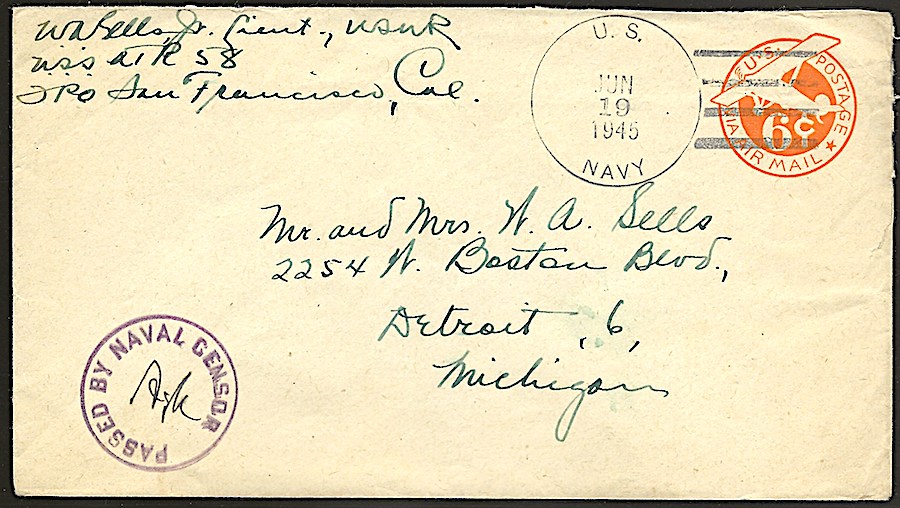 WA Sells, Jr. Lieut., USNR
USS ATR 58
FPO San Francisco, Cal.
U. S.
JUN
19
1945
NAVY
U.S. POSTAGE
6¢
VIA AIR MAIL
Mr. and Mrs. W. A. Sells
2254 W. Boston Blvd.,
Detroit, 6,
Michigan
PASSED BY NAVAL CENSOR